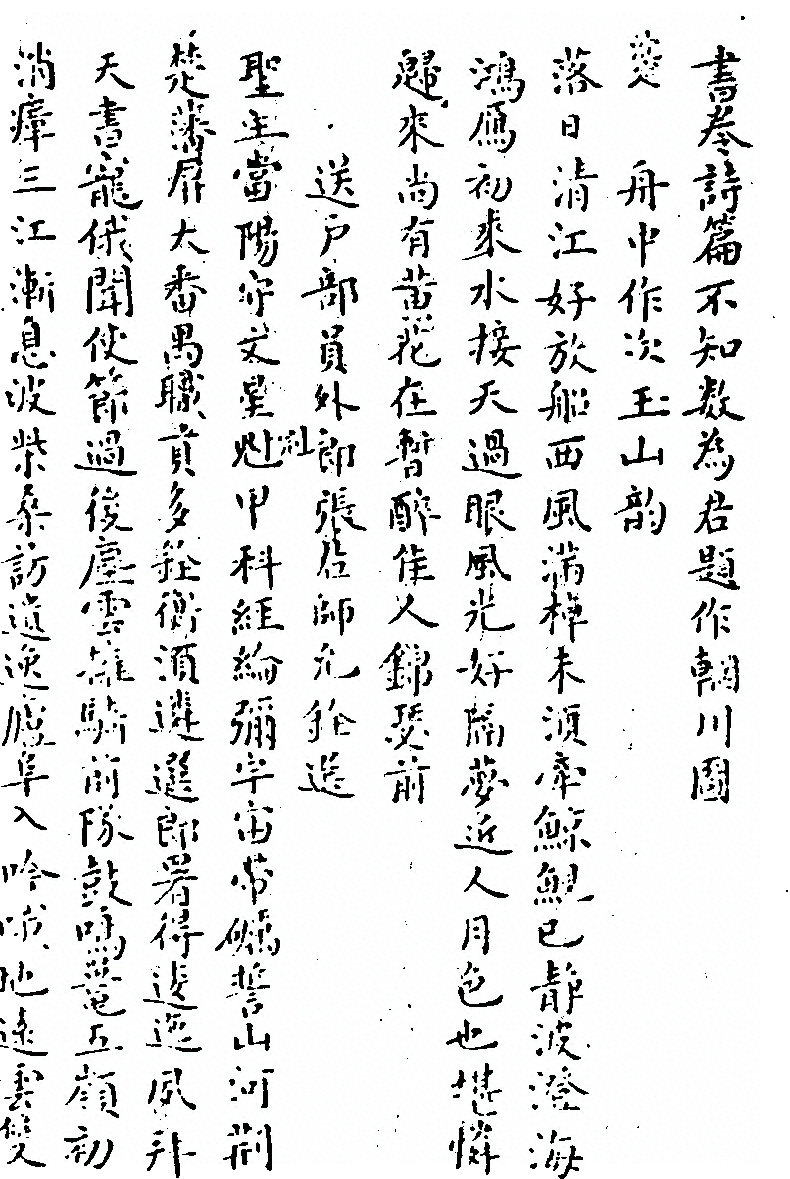 書卷詩篇不知数為君題作輞川圖
舟中作次玉山韵
落日清江好放船西風满棹未湏牵鯨鯢已静波澄海
鴻鴈初来水接天過眼風光好隔夢近人月色也堪憐
歸来尚有黄花在暫醉佳人錦瑟前
送户部員外郎張君師允
聖主當陽守文星魁甲科經綸彌宇宙帶礪誓山河荆
楚藩屏大番禺職貢多銓衡湏遴選郎署得逶迤夙拜
天書寵俄聞使節過後塵雲離騎前隊鼓鳴鼉五嶺初
消瘴三江漸息波柴桑訪遺逸廬阜入吟哦地遠雲雙